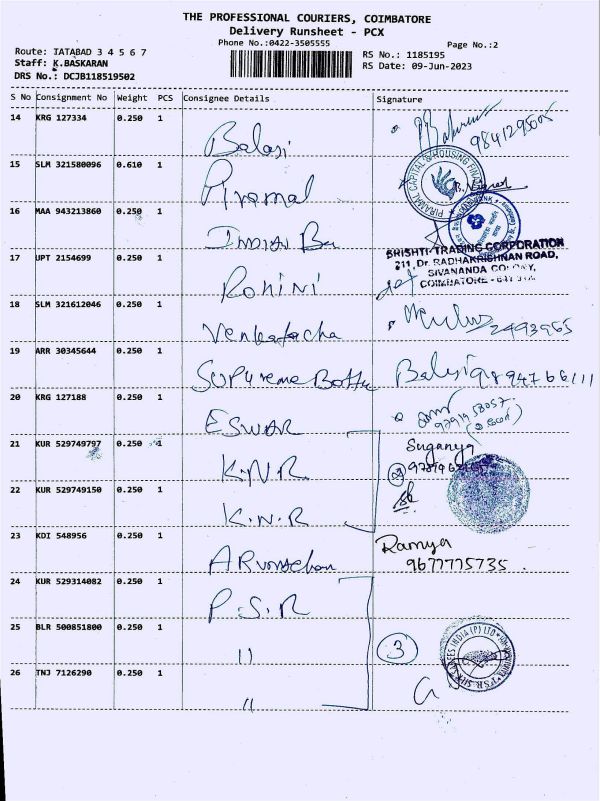 THE PROFESSIONAL COURIERS, COIMBATORE
Delivery Runsheet - PCX
Phone No.:0422-3505555
Page No.:2
Route: IATABAD 3 4 5 6 7
Staff: K.BASKARAN
DRS No.: DCJB118519502
RS No.: 1185195
RS Date: 09-Jun-2023
S No Consignment No Weight PCS Consignee Details Signature
14 KRG 127334 0.250 1 Balaji
15 SLM 321580096 0.610 1 Piramal
PIRAMAL CAPITAL & HOUSING FINANCE
16 MAA 943213860 0.250 1 Indian Ban
17 UPT 2154699 0.250 1 Rohini
SHISHTI TRADING CORPORATION
211, Dr. RADHAKRISHNAN ROAD,
SIVANANDA COLONY,
COIMBATORE -
18 SLM 321612046 0.250 1 Venkatacha
19 ARR 30345644 0.250 1 Supreme Bottu Balaji 9894766111
20 KRG 127188 0.250 1 ESWAR
21 KUR 529749797 0.250 1 K.N.R. Suganya
22 KUR 529749150 0.250 1 K.N.R
23 KDI 548956 0.250 1 Arunachan Ramya
9677775735
24 KUR 529314082 0.250 1 P.S.R
25 BLR 500851800 0.250 1 11 3
26 TNJ 7126290 0.250 1 11